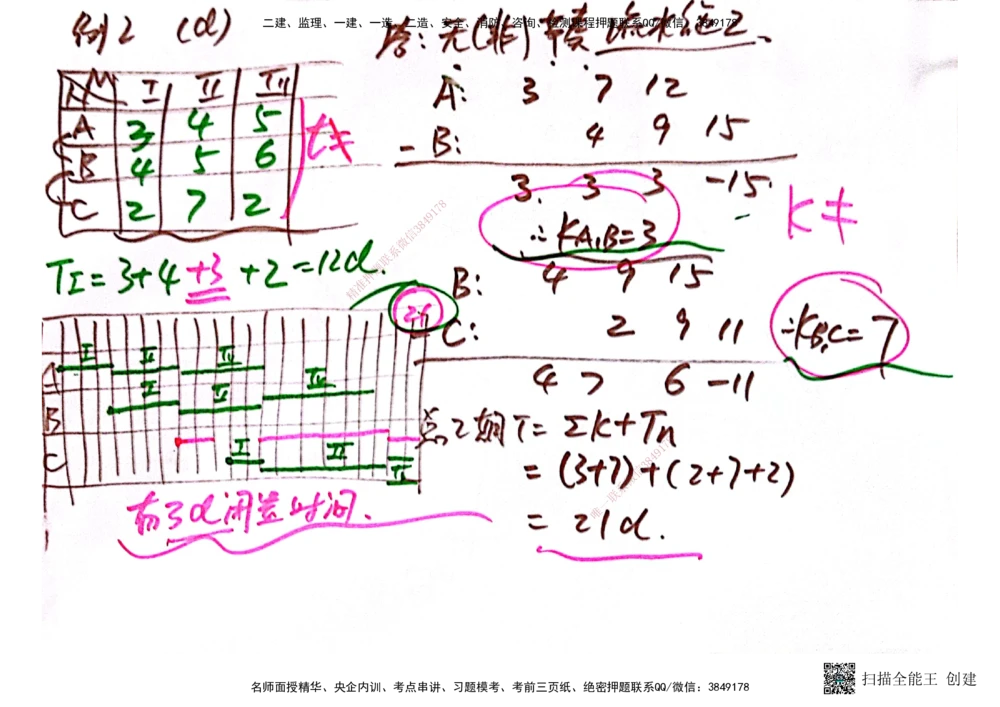 二建、监理、一建、一造、二造、安全、消防、咨询、检测课程押题联系QQ/微信：3849178
例2 (d)
答: 无(非)节奏流水施工、
M I II III
A 3 4 5
B 4 5 6
C 2 7 2
t≠
A: 3 7 12
- B: 4 9 15
3 3 3 -15
∴ KA,B=3
K≠
TI = 3+4+3+2 = 12d.
B: 4 9 15
- C: 2 9 11
4 7 6 -11
∴KB,C=7
21
A I II III
B I II III
C I II III
有3d闲置时间.
总工期T= ΣK+Tn
= (3+7)+(2+7+2)
= 21d.
名师面授精华、央企内训、考点串讲、习题模考、考前三页纸、绝密押题联系QQ/微信：3849178
扫描全能王 创建